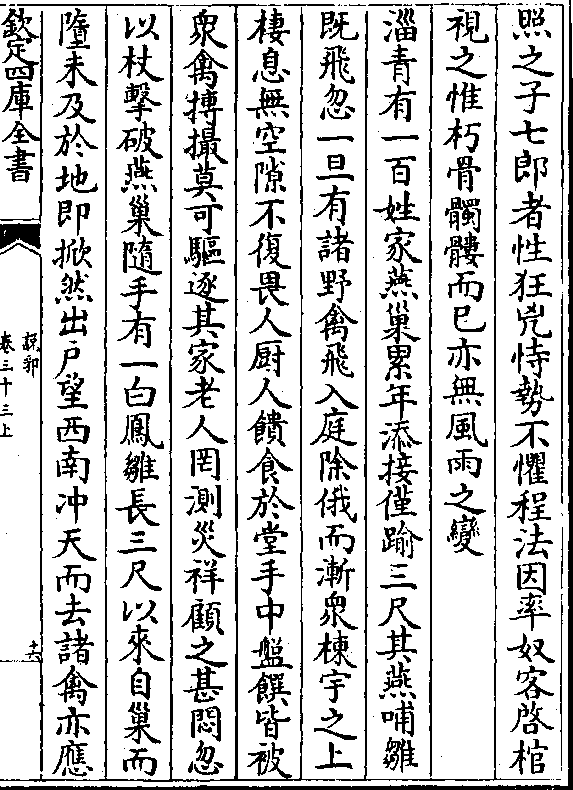 照之子七郎者性狂兇恃勢不懼程法因率奴客啓棺
視之惟朽骨髑髏而已亦無風雨之變
淄青有一百姓家燕巢累年添接僅踰三尺其燕哺雛
既飛忽一旦有諸野禽飛入庭除俄而漸衆棟宇之上
棲息無空隙不復畏人厨人饋食於堂手中盤饌皆被
衆禽搏撮莫可驅逐其家老人罔測災祥顧之甚悶忽
以杖擊破燕巢隨手有一白鳳雛長三尺以來自巢而
墮未及於地即掀然出戶望西南冲天而去諸禽亦應
欽定四庫全書
說郛
卷三十三上
十六